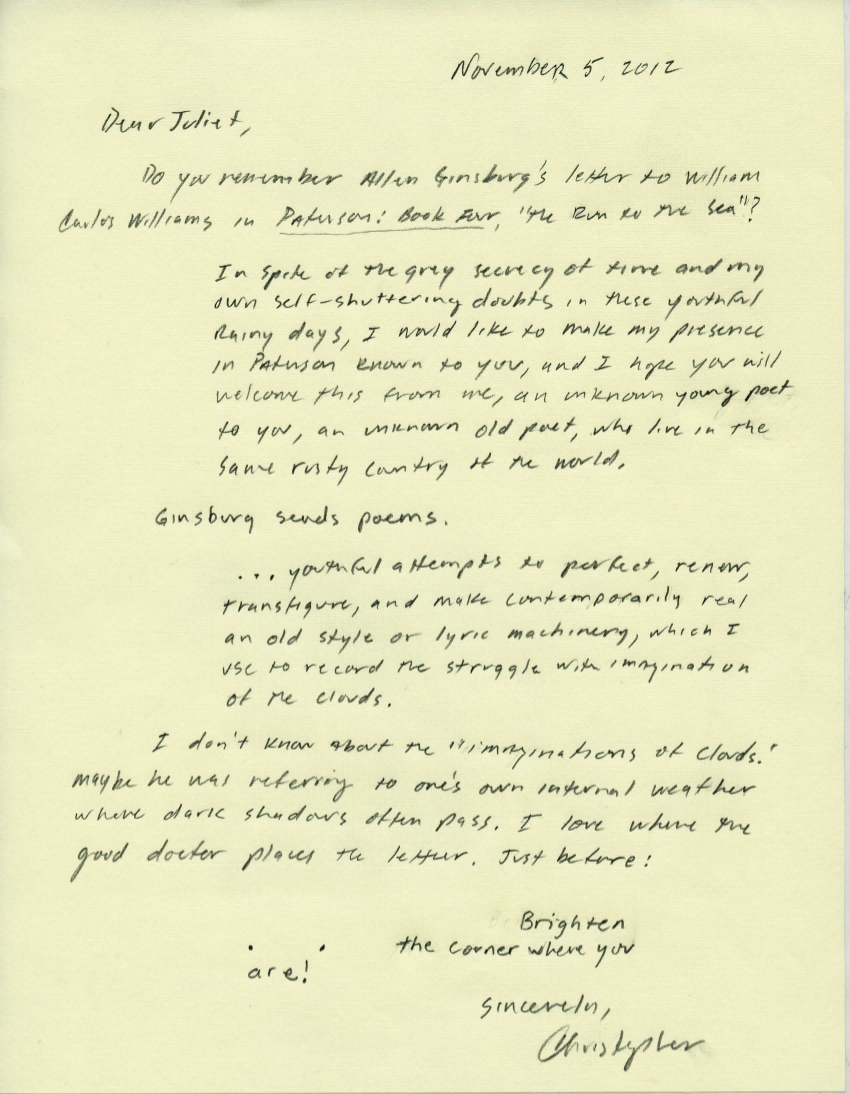 November 5, 2012
Dear Juliet,
Do you remember Allen Ginsburg's letter to William
Carlos Williams in Paterson: Book Four, "The Run to the Sea"?
In spite of the grey secrecy of time and my
own self-shuttering doubts in these youthful
Rainy days, I would like to make my presence
in Paterson known to you, and I hope you will
welcome this from me, an unknown young poet
to you, an unknown old poet, who live in the
same rusty country of the world.
Ginsburg sends poems.
... youthful attempts to perfect, renew,
transfigure, and make contemporarily real
an old style or lyric machinery, which I
use to record the struggle with imagination
of the clouds.
I don't know about the "imaginations of clouds."
maybe he was referring to one's own internal weather
where dark shadows often pass. I love where the
good doctor places the letter. Just before:
Brighten
. . the corner where you
are!
Sincerely,
Christopher